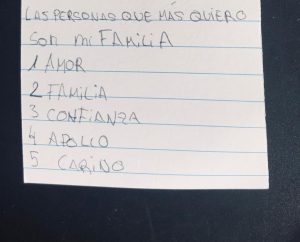 LAS PERSONAS QUE MÁS QUIERO
SON MI FAMILIA
1 AMOR
2 FAMILIA
3 CONFIANZA
4 APOLLO
5 CARIÑO